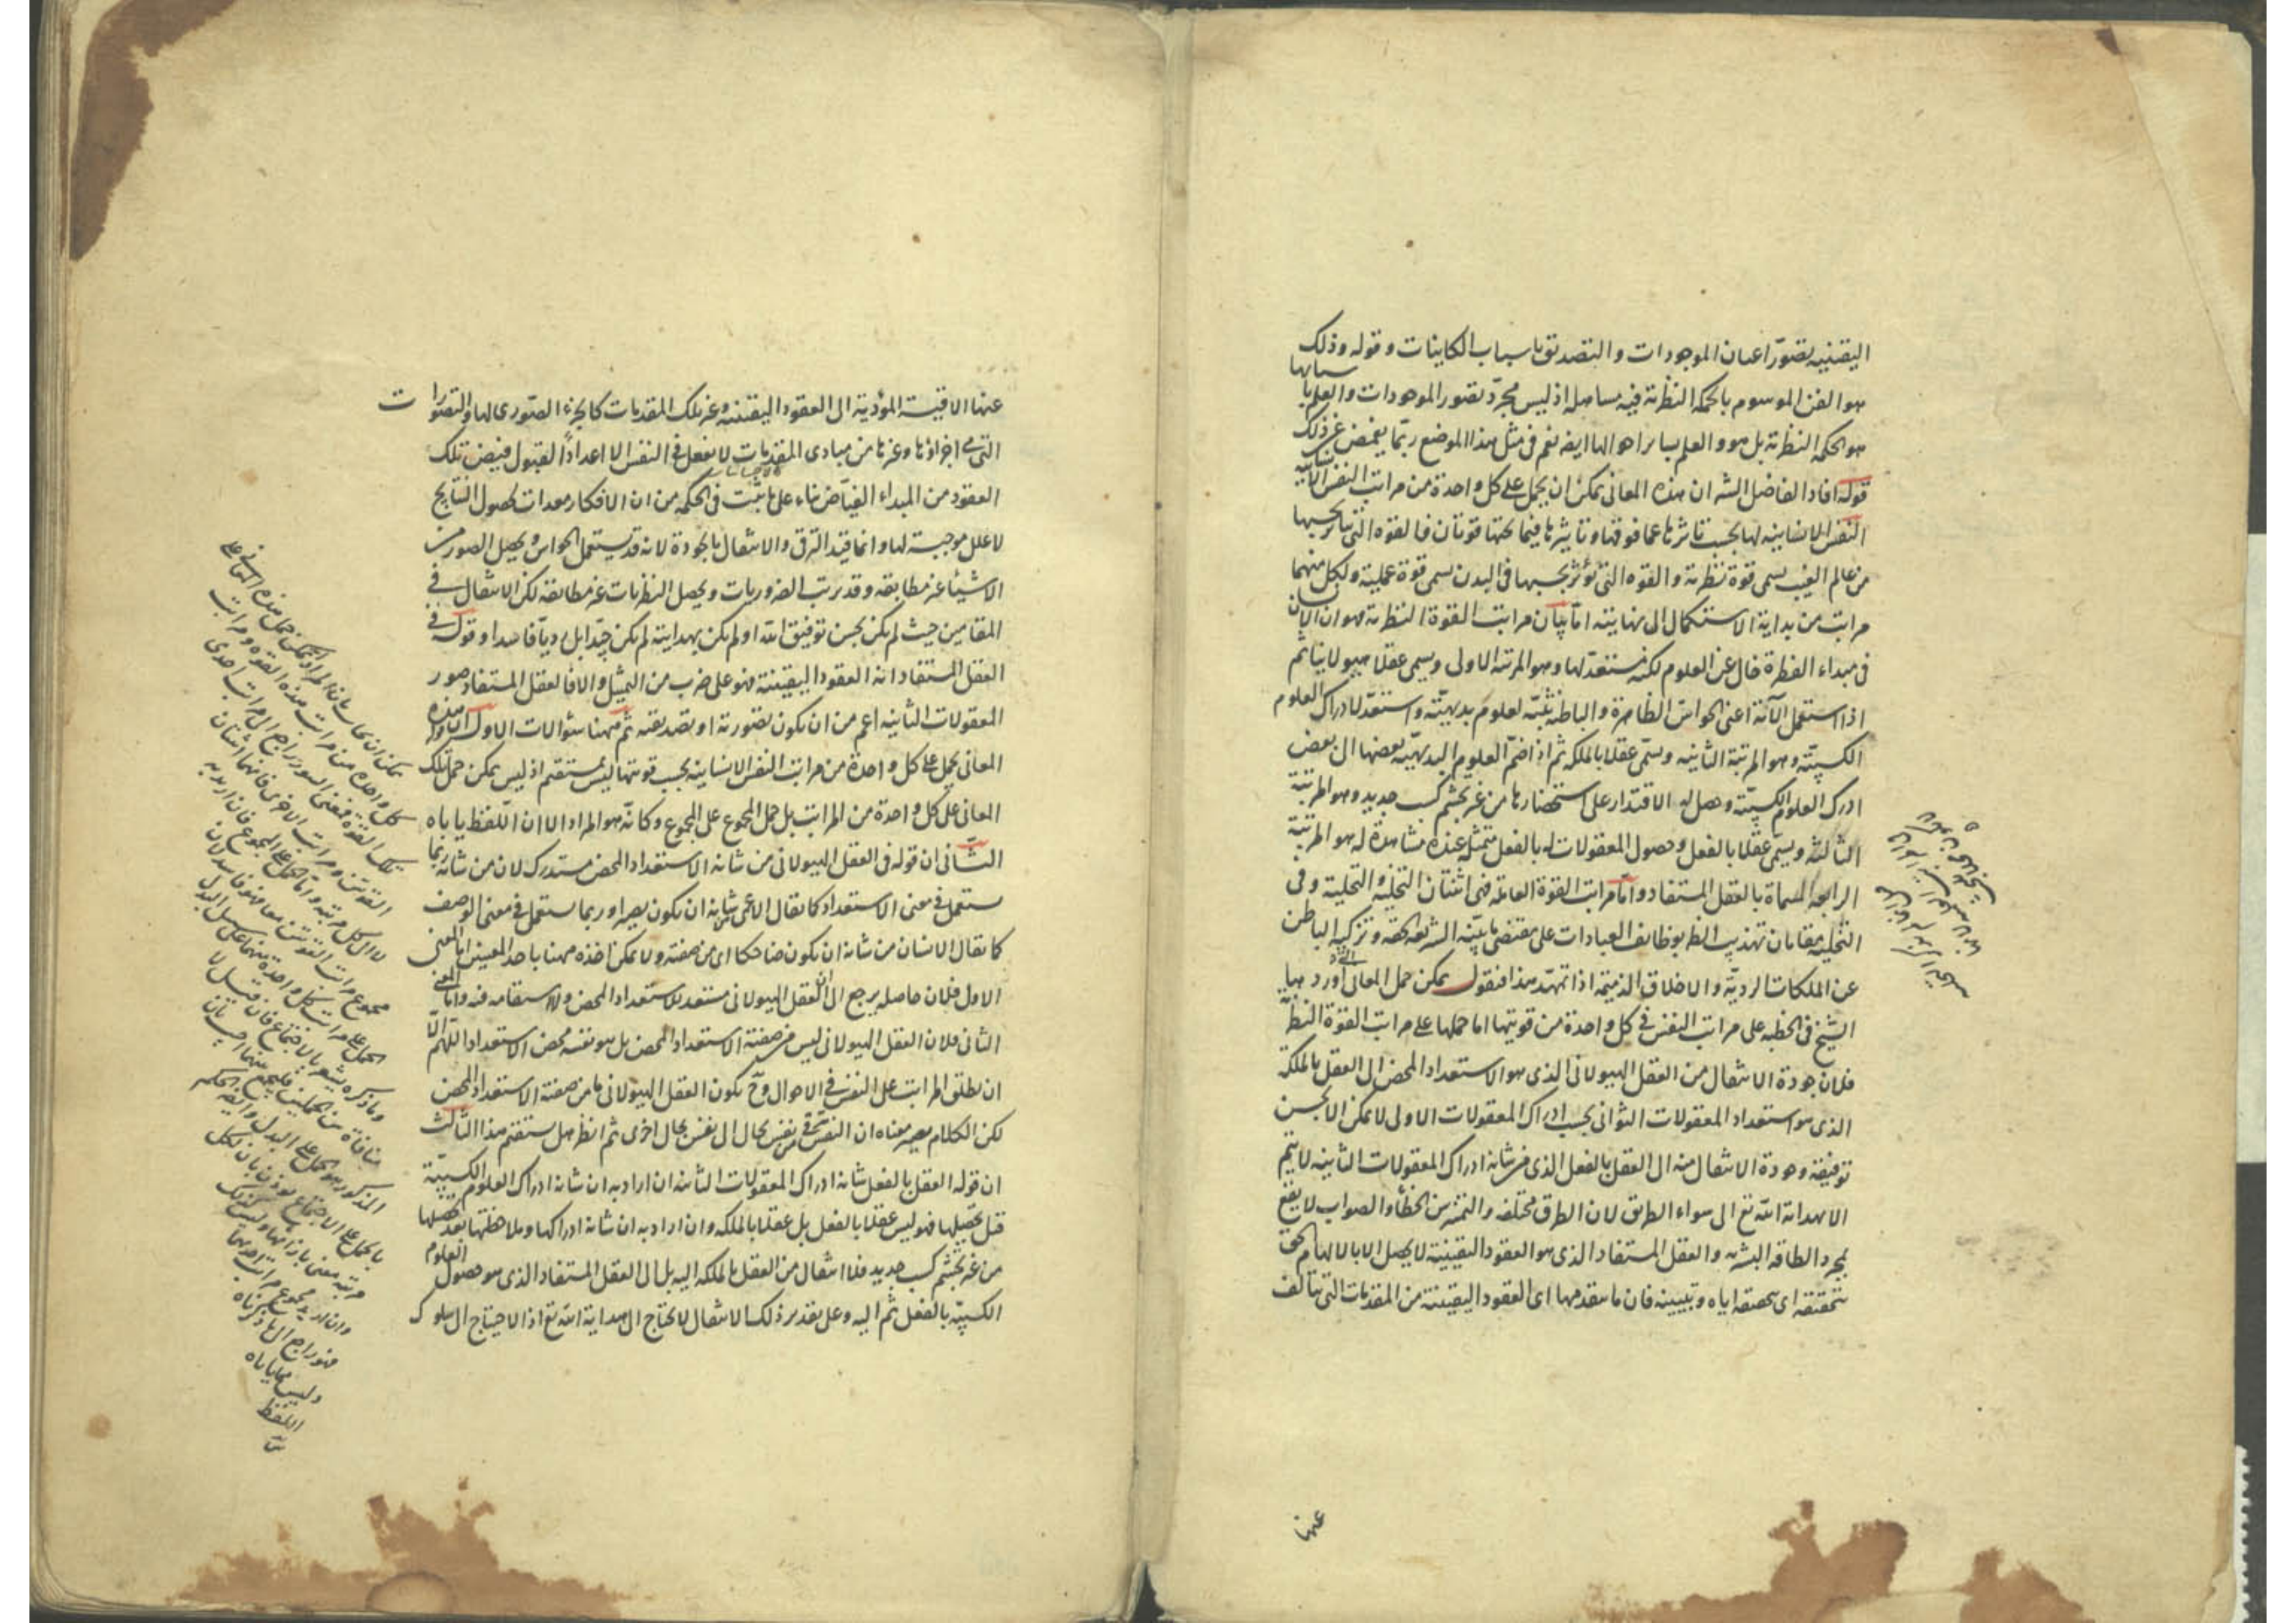 اليقينيه بتصور اعيان الموجودات و التصديق باسباب الكاينات و قوله وذلك
هو الفن الموسوم بالحكمة النظرية فيه مساهله اذ ليس مجرد تصور الموجودات والعلم باسبابها
هو الحكمة النظرية بل هو و العلم بسايراحوالها ايضه نعم فى مثل هذا الموضع ربما يغمض عن ذلك
قوله افاد الفاضل الش ان هذه المعانى يمكن ان يحمل على كل واحدة من مراتب النفس الانسانيه
النفس الانسانيه لها بحسب تاثرها عما فوقها و تاثيرها فيما تحتها قوتان فالقوة التى تتاثر بحسبها
من عالم الغيب يسمى قوة نظرية و القوه التى تؤثر بحسبها فى البدن يسمى قوة عملية ولكل منهما
مراتب من بداية الاستكمال الى نهايته اما بيان مراتب القوة النظرية فهو ان الانسان
فى مبداء الفطرة خال عن العلوم لكنه مستعد لها وهو المرتبة الاولى ويسمى عقلا هيولانيا ثم
اذا استعمل الآلة اعنى الحواس الظاهرة و الباطنة تنبه لعلوم بديهيّة و استعدّ لادراك العلوم
الكسبيّة وهو المرتبة الثانيه و يسمّى عقلا بالملكه ثم اذا ضم العلوم البديهيّه بعضها الى بعض
ادرك العلوم الكسبيّة وحصل له الاقتدار على استحضارها من غير تجشم كسب جديد وهو المرتبة
الثالثه ويسمّى عقلا بالفعل وحصول المعقولات له بالفعل متمثلة عنده مشاهدة له هو المرتبة
الرابعة المسماة بالعقل المستفاد و امّا مراتب القوة العامله فهى اثنتان التخلية و التحلية وفى
التخلية مقامان تهذيب الظ بوظايف العبادات على مقتضى ما بيّنه الشريعه الحقه و تزكية الباطن
عن الملكات الرديّة و الاخلاق الذميمة اذا تمهّد هذا فنقول يمكن حمل المعانى التى اورد بها
الشيخ فى الخطبه على مراتب النفس فى كل واحدة من قوتيها اما حملها على مراتب القوة النظ
فلان جودة الانتقال من العقل الهيولانى الذى هو الاستعداد المحض الى العقل بالملكة
الذى هو استعداد المعقولات الثوانى بحسب ادراك المعقولات الاولى لا يمكن الا بحسن
توفيقه وجودة الانتقال منه الى العقل بالفعل الذى من شانه ادراك المعقولات الثانيه لا يتم
الا بهداية الله تع الى سواء الطريق لان الطرق مختلفه و التميز بين الخطأ و الصواب لا يقع
بمجرد الطاقه البشريه و العقل المستفاد الذى هو العقود اليقينية لا يحصل الا بالالهام الحق
بتحقيقه اى بتحقيقه اياه و تبيينه فان ما يتقدمها اى العقود اليقينية من المقدمات التى يتالف
عنها
عنها الاقيسة المؤدية الى العقود اليقينيه وغير تلك المقدمات كالجزء الصورى لها و التصورات
التى هى اجزاؤها و غيرها من مبادى المقدمات لا يفعل فى النفس الا اعدادا لقبول فيض تلك
العقود من المبداء الفياض بناء على ما ثبت فى الحكمه من ان الافكار معدات لحصول النتايج
لا علل موجبة لها و انما قيد الترقى و الانتقال بالجودة لانه قد يستعمل الحواس و يحصل الصور من
الاشياء غير مطابقه و قد يرتب الضروريات و يحصل النظريات غير مطابقه لكن الانتقال فى
المقامين حيث لم يكن بحسن توفيق الله او لم يكن بهدايته لم يكن جيّدا بل رديا فاسدا و قوله فى
العقل المستفاد انه العقود اليقينية فهو على ضرب من التمثيل و الا فالعقل المستفاد صور
المعقولات الثانيه اعم من ان يكون تصورية او تصديقيه ثم ههنا سؤالات الاول ان هذه
المعانى يحمل على كل واحدة من مراتب النفس الانسانيه بحسب قوتيها ليس بمستقيم اذ ليس يمكن حمل تلك
المعانى على كل واحدة من المراتب بل حمل المجموع على المجموع و كانّه هو المراد الا ان اللفظ ياباه
الثانى ان قوله فى العقل الهيولانى من شانه الاستعداد المحض مستدرك لان من شانه ربما
يستعمل فى معنى الاستعداد كما يقال الاعمى من شانه ان يكون بصيرا و ربما يستعمل فى معنى الوصف
كما يقال الانسان من شانه ان يكون ضاحكا اى من صفته و لا يمكن اخذه ههنا باحد المعنيين اما المعنى
الاول فلان حاصله يرجع الى ان العقل الهيولانى مستعد للاستعداد المحض ولا استقامه فيه و اما المعنى
الثانى فلان العقل الهيولانى ليس من صفته الاستعداد المحض بل هو نفسه محض الاستعداد اللهم الّا
ان يطلق المراتب على النفس فى الاحوال وح يكون العقل الهيولانى ما من صفته الاستعداد المحض
لكن الكلام يصير معناه ان النفس تترقى من نفس بحال الى نفس بحال اخرى ثم انظر هل يستقيم هذا الثالث
ان قوله العقل بالفعل شانه ادراك المعقولات الثانيه ان اراد به ان شانه ادراك العلوم الكسبيّة
قبل تحصيلها فهو ليس عقلا بالفعل بل عقلا بالملكه وان اراد به ان شانه ادراكها و ملاحظتها بعد تحصيلها
من غير تجشم كسب جديد فلا انتقال من العقل بالملكه اليه بل الى العقل المستفاد الذى هو حصول العلوم
الكسبيّه بالفعل ثم اليه و على تقدير ذلك الانتقال لا يحتاج الى هداية الله تع اذ الاحتياج الى سلوك
يمكن ان يجاب بان المراد يمكن حمل هذه المعانى على
كل واحدة من مراتب هذه القوة و مراتب
تلك القوة
القوتين و مراتب الاخرى فانهما اثنتان
لا الى كل مرتبه و اما الحمل على المجموع فان اريد به
مجموع مراتب القوتين معا فهو فاسد لان
الحمل على مراتب كل واحدة منهما على سبيل البدل
وما ذكره يشعر بالاجتماع فان قيل لا
منافاة بين الحملين
المذكور هو الحمل على البدل
بالحمل على الاجتماع
مرتبة معنى بازائها وليس كذلك
وان اريد مجموع مراتب احديهما
فهو راجع الى ما ذكرناه
وليس مما ياباه
اللفظ